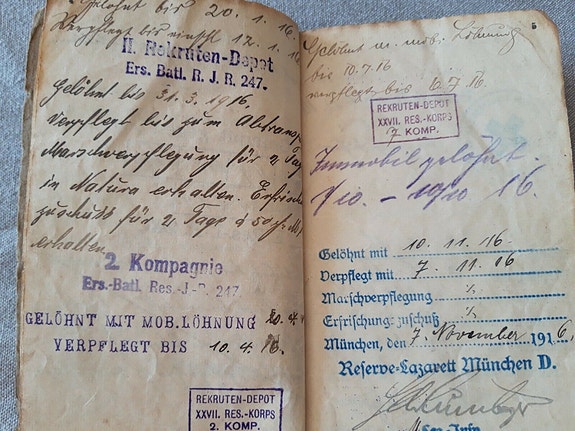 Gelöhnt bis 20. 1. 16.
Verpflegt bis einschl. 12. 1. 16
II. Rekruten-Depot
Ers. Batl. R. J. R. 247.
Gelöhnt bis 31. 3. 1916.
Verpflegt bis zum Abtransp
Marschverpflegung für 2 Tage
in Natura erhalten. Erfrisch
zuschuß für 2 Tage à 50
erhalten.
2. Kompagnie
Ers.-Batl. Res.-J.-R. 247.
GELÖHNT MIT MOB.LÖHNUNG 20.4.
VERPFLEGT BIS 10.4.16.
REKRUTEN-DEPOT
XXVII. RES.-KORPS
2. KOMP.
5
Gelöhnt m. mob. Löhnung
bis 10.7.16
verpflegt bis 6.7.16.
REKRUTEN-DEPOT
XXVII. RES.-KORPS
7 KOMP.
Immobil gelöhnt.
16.
Gelöhnt mit 10. 11. 16.
Verpflegt mit 7. 11 16
Marschverpflegung ./.
Erfrischung: zuschuß ./.
München, den 7. November 1916
Reserve-Lazarett München D.